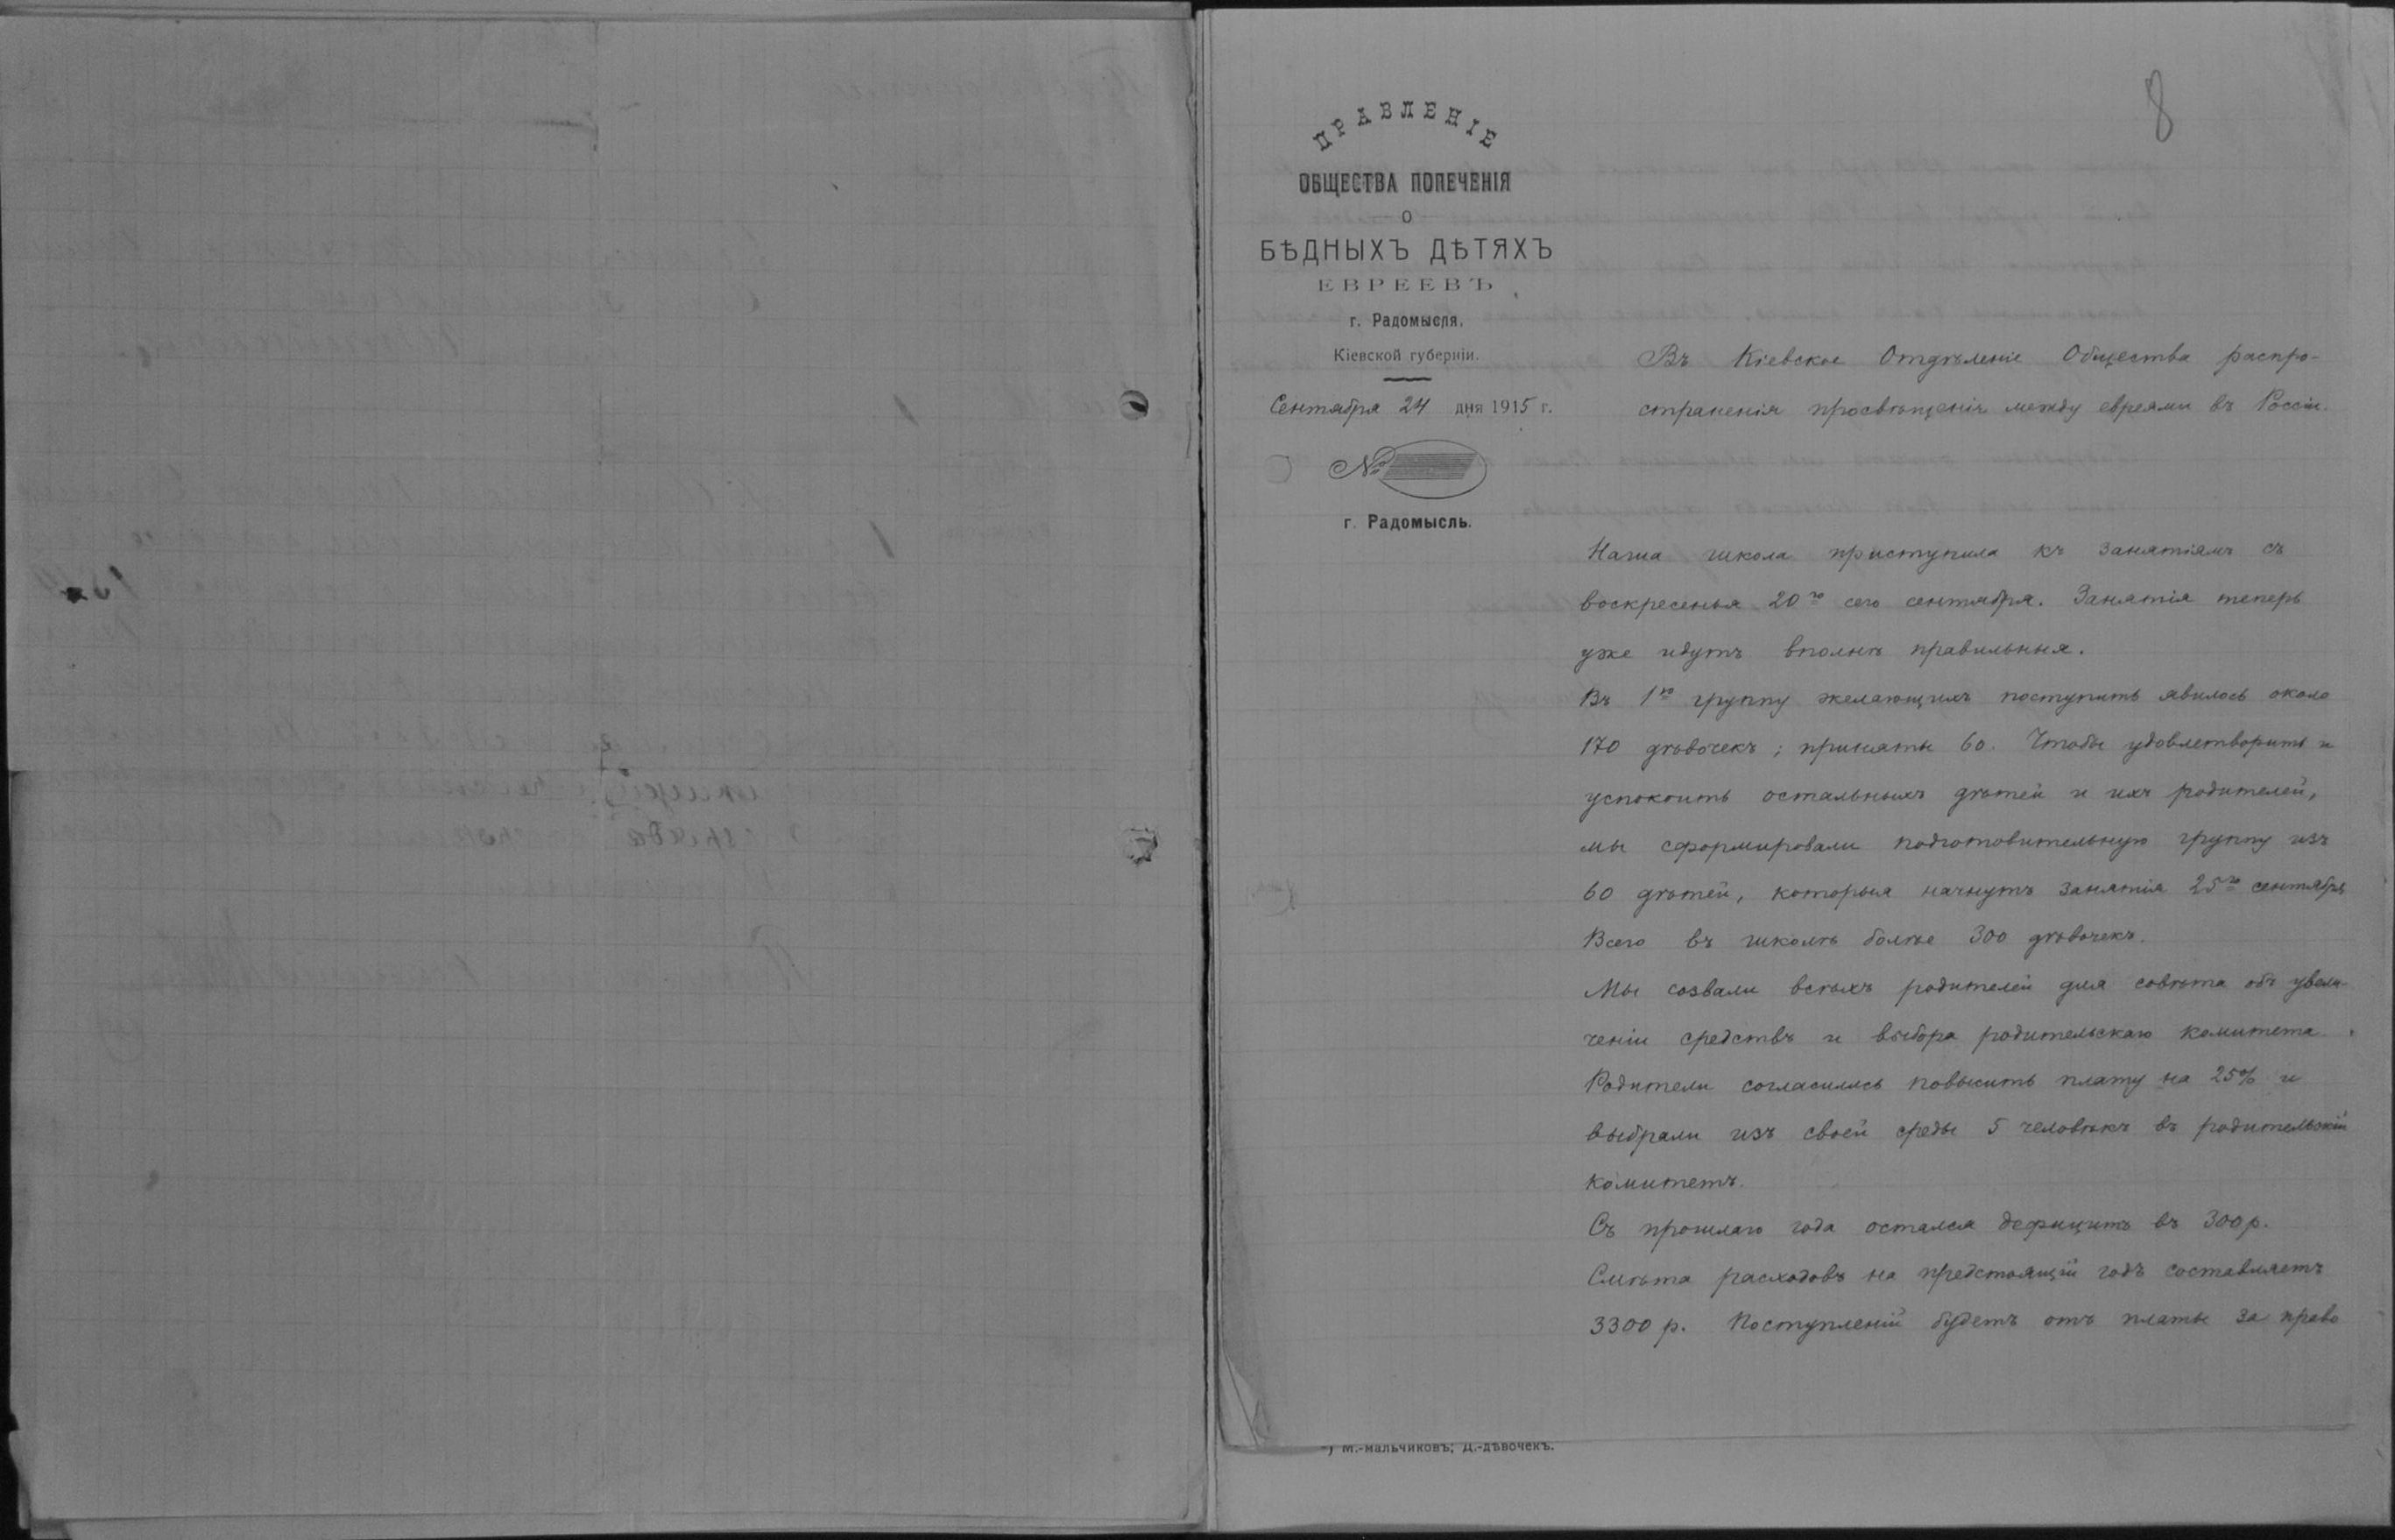 8
ПРАВЛЕНІЕ
ОБЩЕСТВА ПОПЕЧЕНІЯ
О
БѢДНЫХЪ ДѢТЯХЪ
ЕВРЕЕВЪ
г. Радомысля,
Кіевской губерніи.
Сентября 24 дня 1915 г.
№
г. Радомысль.
Въ Кіевское Отдѣленіе Общества распро-
страненія просвѣщенія между евреями въ Россіи.
Наша школа приступила къ занятіямъ съ
воскресенья 20го сего сентября. Занятія теперь
уже идутъ вполнѣ правильныя.
Въ 1ю группу желающихъ поступить явилось около
170 дѣвочекъ; приняты 60. Чтобы удовлетворить и
успокоить остальныхъ дѣтей и ихъ родителей,
мы сформировали подготовительную группу изъ
60 дѣтей, которыя начнутъ занятія 25го сентября
Всего въ школѣ болѣе 300 дѣвочекъ.
Мы созвали всѣхъ родителей для совѣта объ увели-
ченіи средствъ и выбора родительскаго комитета.
Родители согласились повысить плату на 25% и
выбрали изъ своей среды 5 человѣкъ въ родительскій
комитетъ.
Съ прошлаго года остался дефицитъ въ 300 р.
Смѣта расходовъ на предстоящій годъ составляетъ
3300 р. Поступленій будетъ отъ платы за право
*) М.-мальчиковъ; Д.-дѣвочекъ.